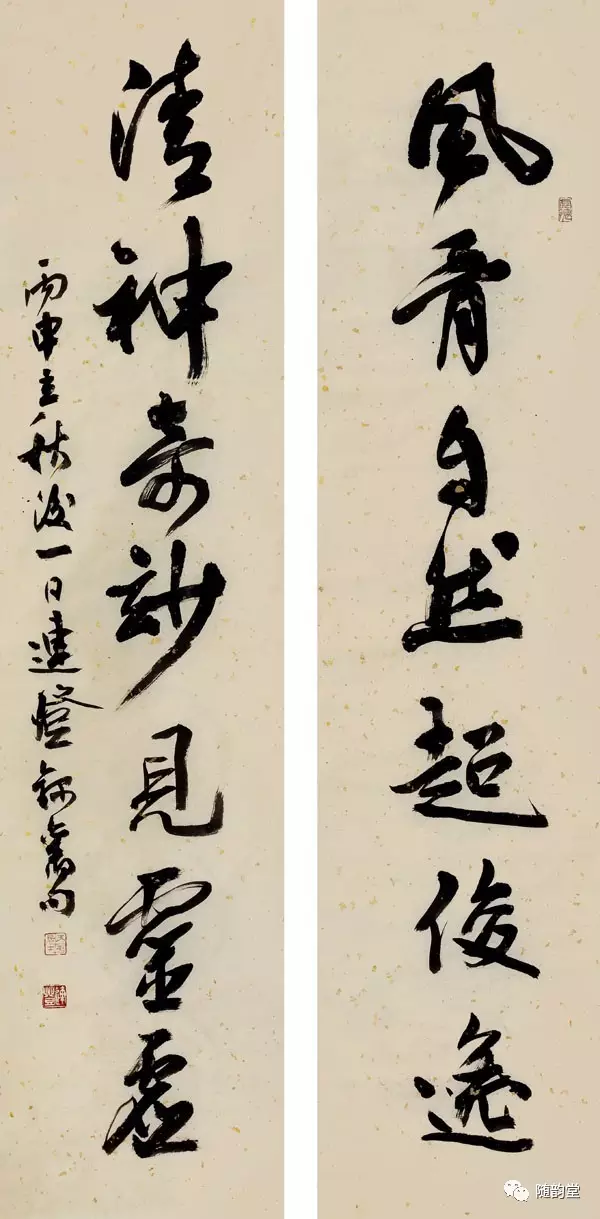 風骨自然超俊逸
清神奇妙見靈虛
丙申立秋後一日連登錄舊句
随韵堂